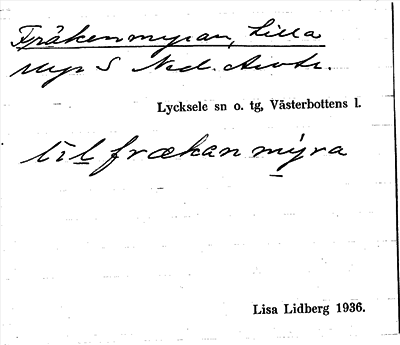 Fräkenmyran, Lilla
Myr S Ned. Avatr.
Lycksele sn o. tg, Västerbottens l.
lil frækan mỳra
Lisa Lidberg 1936.